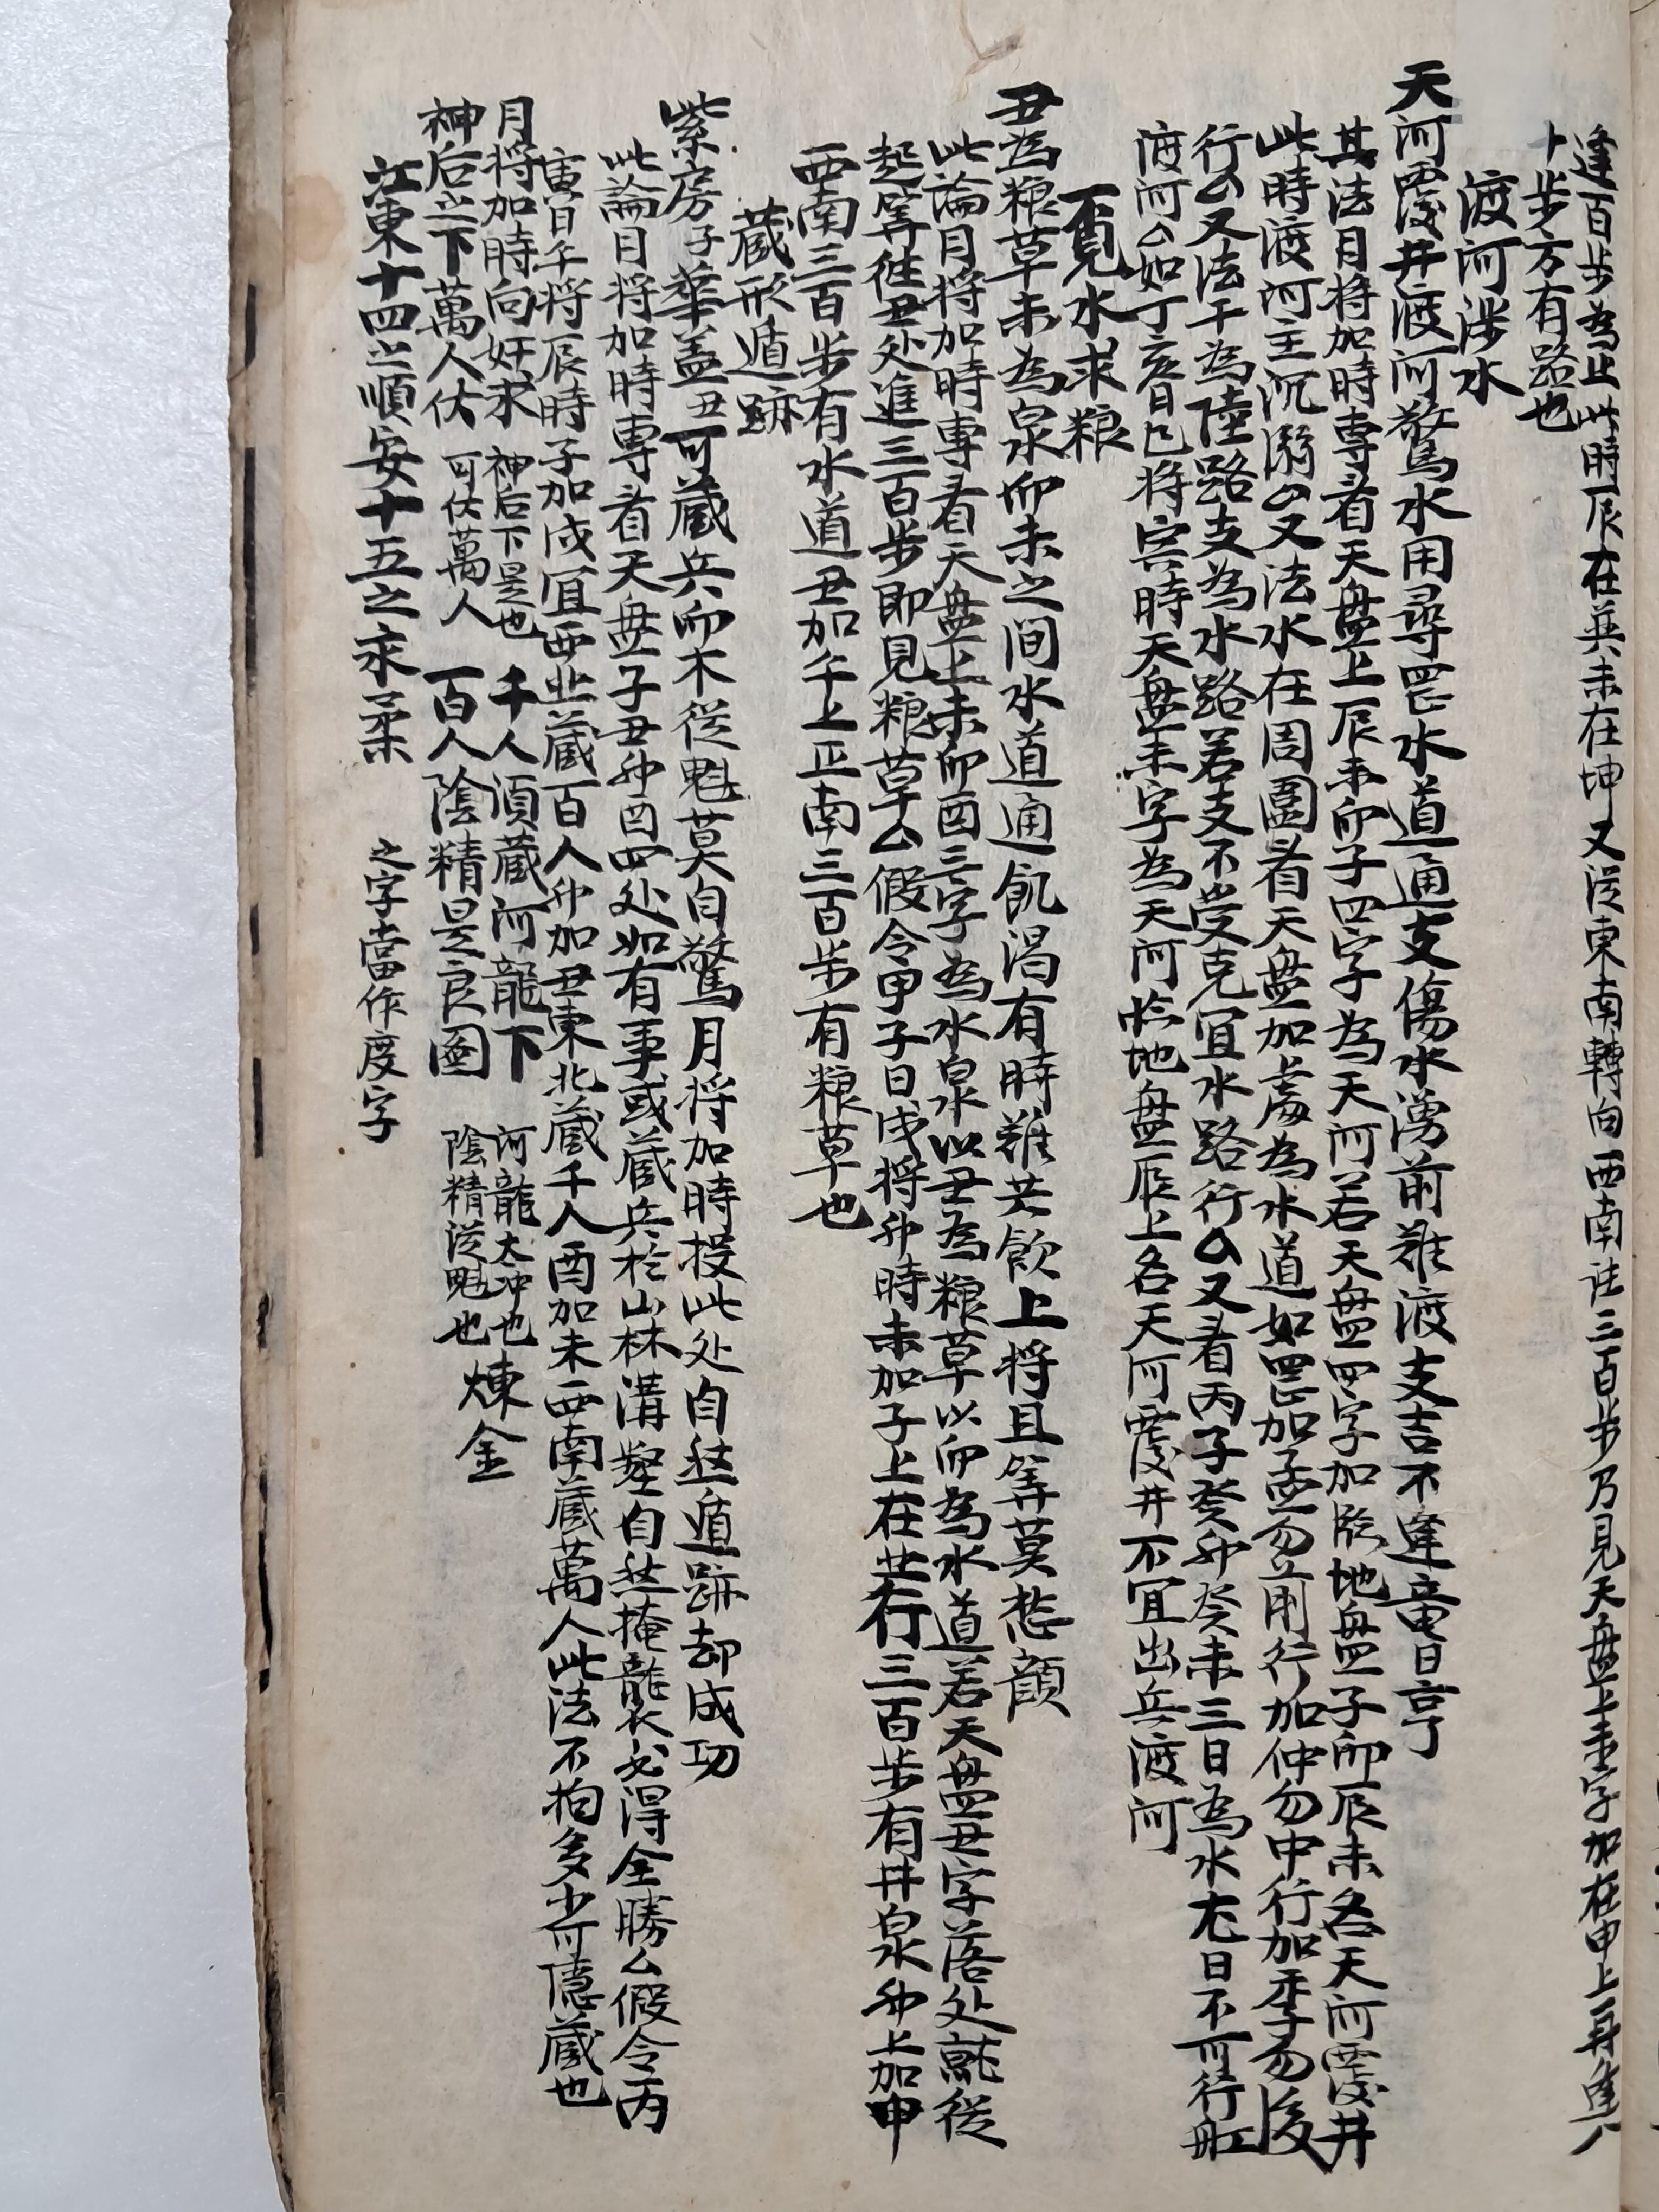 逢百步為止此時辰在巽未在坤又從東南轉向西南註三百步乃見天盤上未字加在申上再進
十步方有路也
渡河涉水
天河覆井渡河驚水用尋罡水道通支傷水湧前難渡支吉不逢音日亨
其法月将加時專看天盤上辰未卯子四字為天河若天盤四字加臨地盤子卯辰未名天河覆井
此時渡河主沉溺么又法水在周圍看天盤加處為水道如罡加孟勿前行加仲勿中行加季勿後
行么又法干為陸路支為水路若支不受克宜水路行么又看丙子癸卯癸未三日為水尤日不可行舡
渡河么如丁亥日巳将寅時天盤未字為天河臨地盤辰上名天河覆井不宜出兵渡河
覓水求粮
丑為粮草未為泉卯未之间水道通飢渴有時难共飲上将且筹莫愁顔
此論月将加時專看天盤上未卯酉三字為水泉以丑為粮草以卯為水道若天盤丑字落处就從
起筭徃丑处進三百步即見粮草么假令甲子日戌将卯時未加子上在北行三百步有井泉卯上加申
西南三百步有水道丑加午上正南三百步有粮草也
蔵形遁跡
紫房子華盖丑可蔵兵卯木從魁莫自驚月将加時投此处自然遁跡却成功
此論月将加時專看天盤子丑卯酉四处如有事或蔵兵於山林溝壑自然掩襲必得全勝么假令丙
寅日午将辰時子加戌宜西北蔵百人卯加丑東北蔵千人酉加未西南蔵萬人此法不拘多少可隱蔵也
月将加時向奸求 神后下是也 千人須蔵河龍下 河龍太冲也
神后之下萬人伏 可伏萬人 百人陰精是良圖 陰精從魁也 煉金
江東十四之順安十五之永柔 之字當作度字